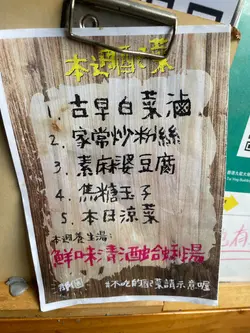 本週配菜
1. 古早白菜滷
2. 家常炒粉絲
3. 素麻婆豆腐
4. 焦糖玉子
5. 本日涼菜
本週養生湯:
鮮味清酒蛤蜊湯
#不吃的配菜請示意喔